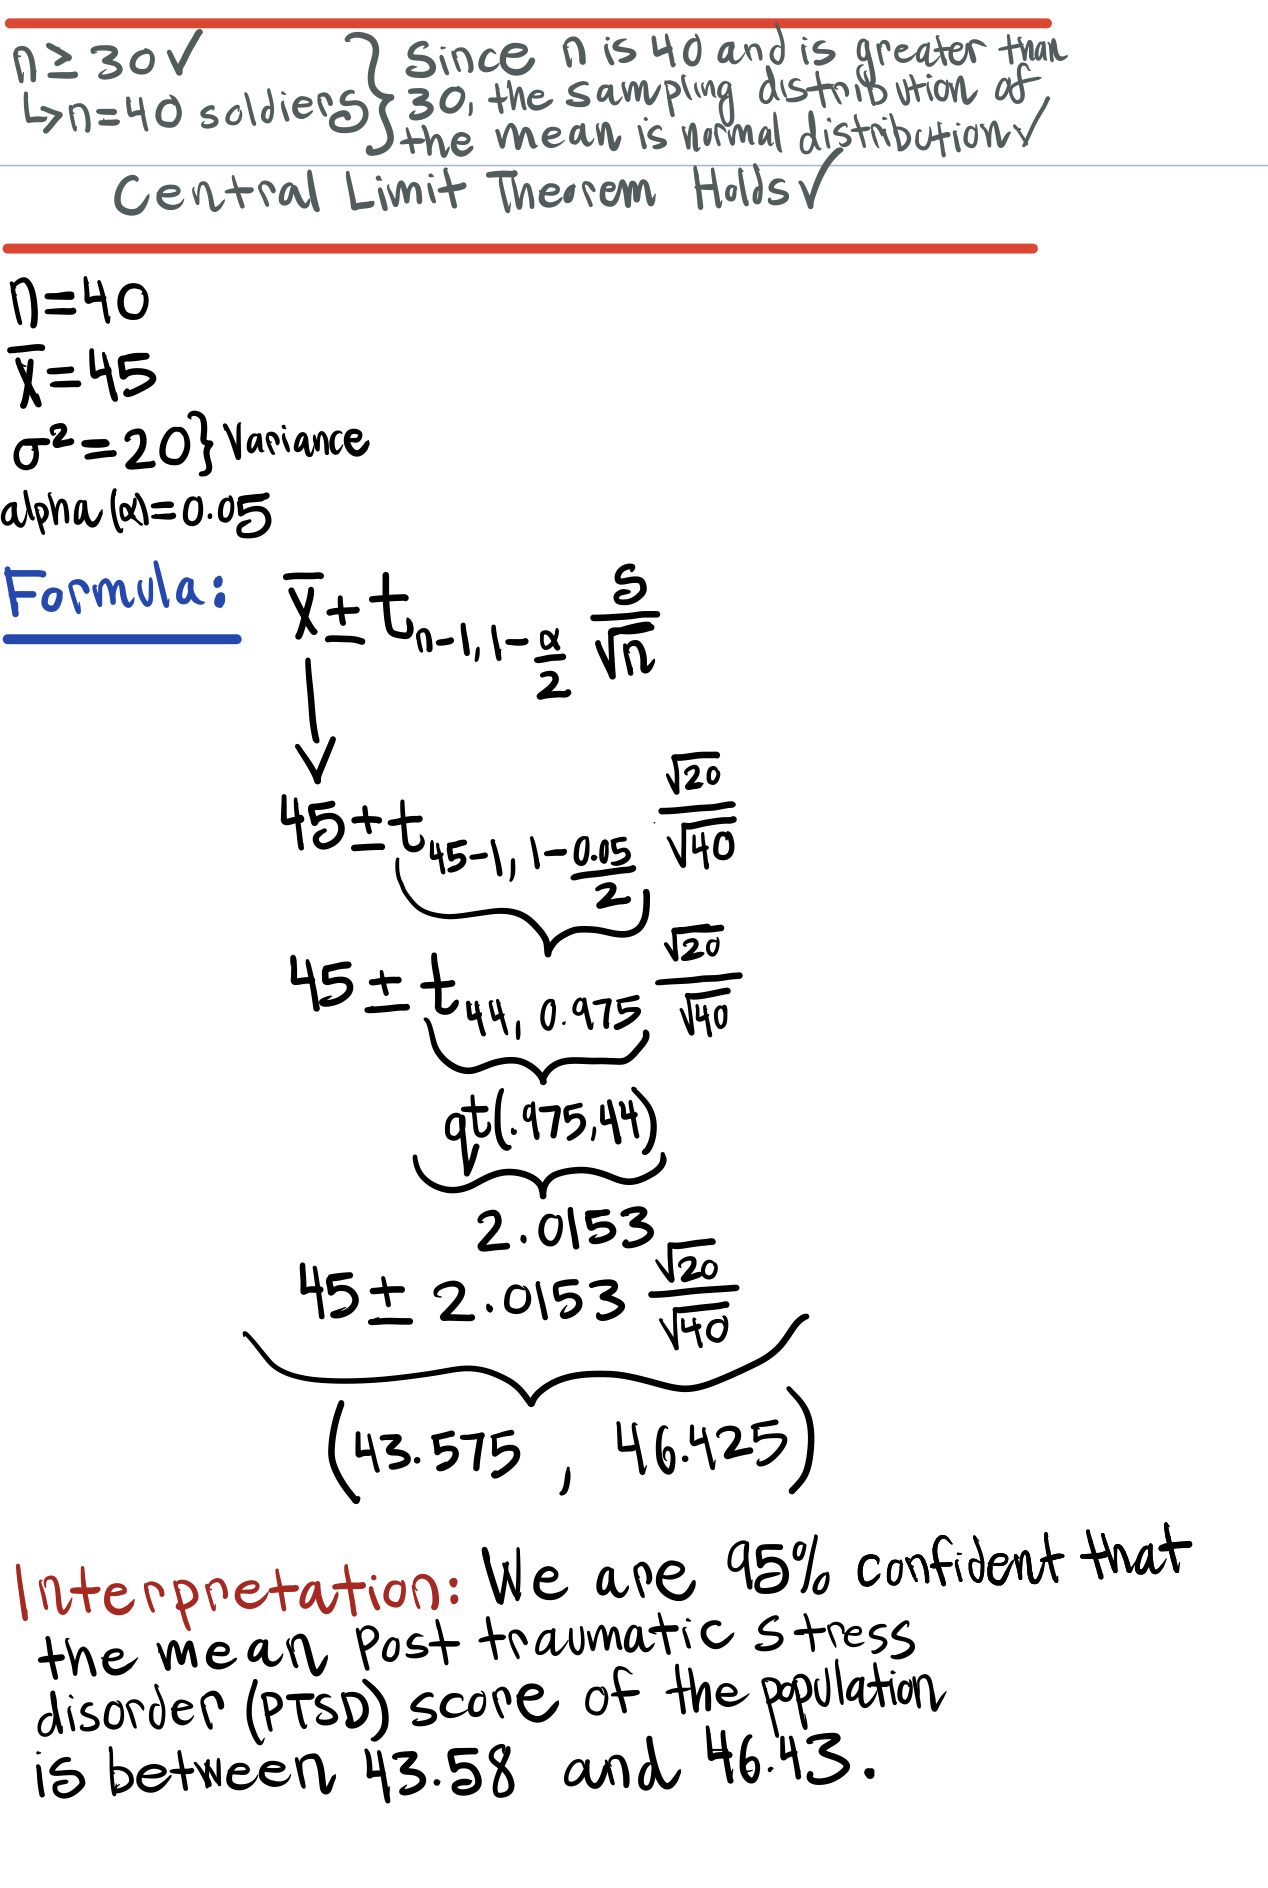 n ≥ 30 ✓ } Since n is 40 and is greater than
↳ n=40 soldiers } 30, the sampling distribution of
the mean is normal distribution ✓
Central Limit Theorem Holds ✓
n=40
x̄=45
σ²=20} Variance
alpha (α)=0.05
Formula: x̄ ± t_{n-1, 1-α/2} s/√n
45 ± t_{45-1, 1-0.05/2} √20/√40
45 ± t_{44, 0.975} √20/√40
qt(.975,44)
2.0153
45 ± 2.0153 √20/√40
(43.575 , 46.425)
Interpretation: We are 95% confident that
the mean Post traumatic stress
disorder (PTSD) score of the population
is between 43.58 and 46.43.